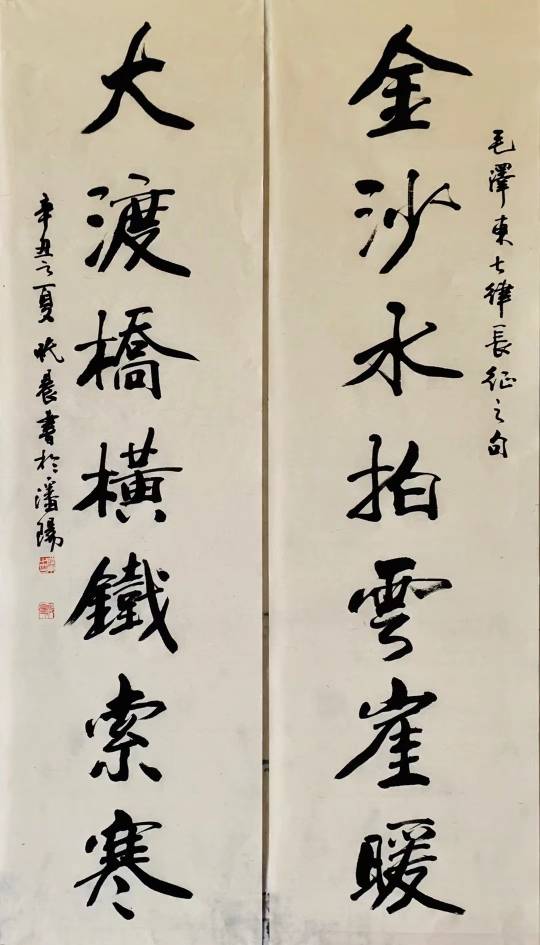 毛澤東七律長征之句
金沙水拍雲崖暖
大渡橋橫鐵索寒
辛丑之夏晨書於瀋陽